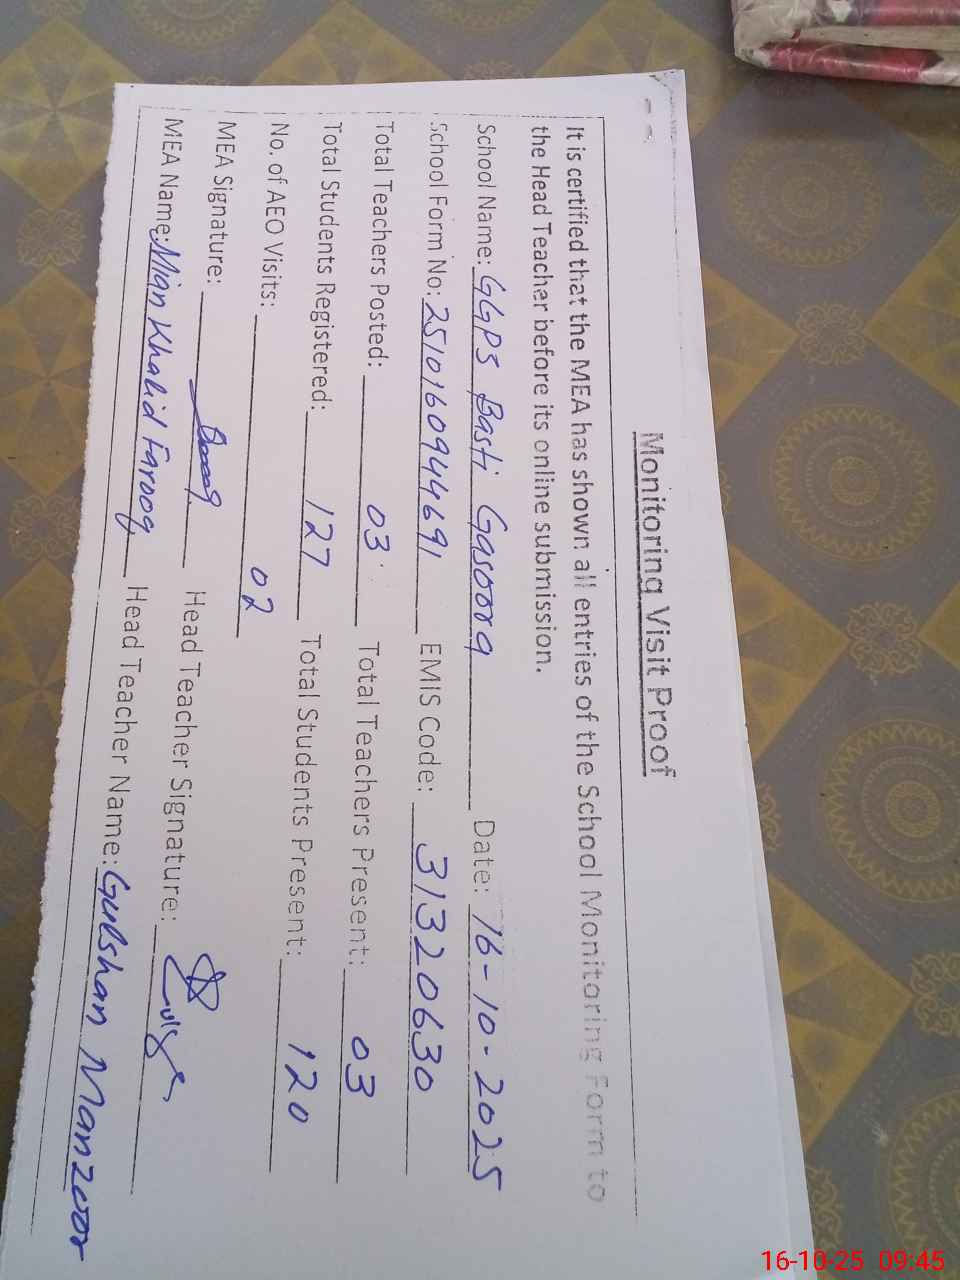 Monitoring Visit Proof
It is certified that the MEA has shown all entries of the School Monitoring Form to
the Head Teacher before its online submission.
School Name: GGPS Basti Gasoora Date: 16-10-2025
School Form No: 2510160944691 EMIS Code: 31320630
Total Teachers Posted: 03 Total Teachers Present: 03
Total Students Registered: 127 Total Students Present: 120
No. of AEO Visits: 02
MEA Signature: Head Teacher Signature:
MEA Name: Mian Khalid Farooq Head Teacher Name: Gulshan Manzoor
16-10-25 09:45